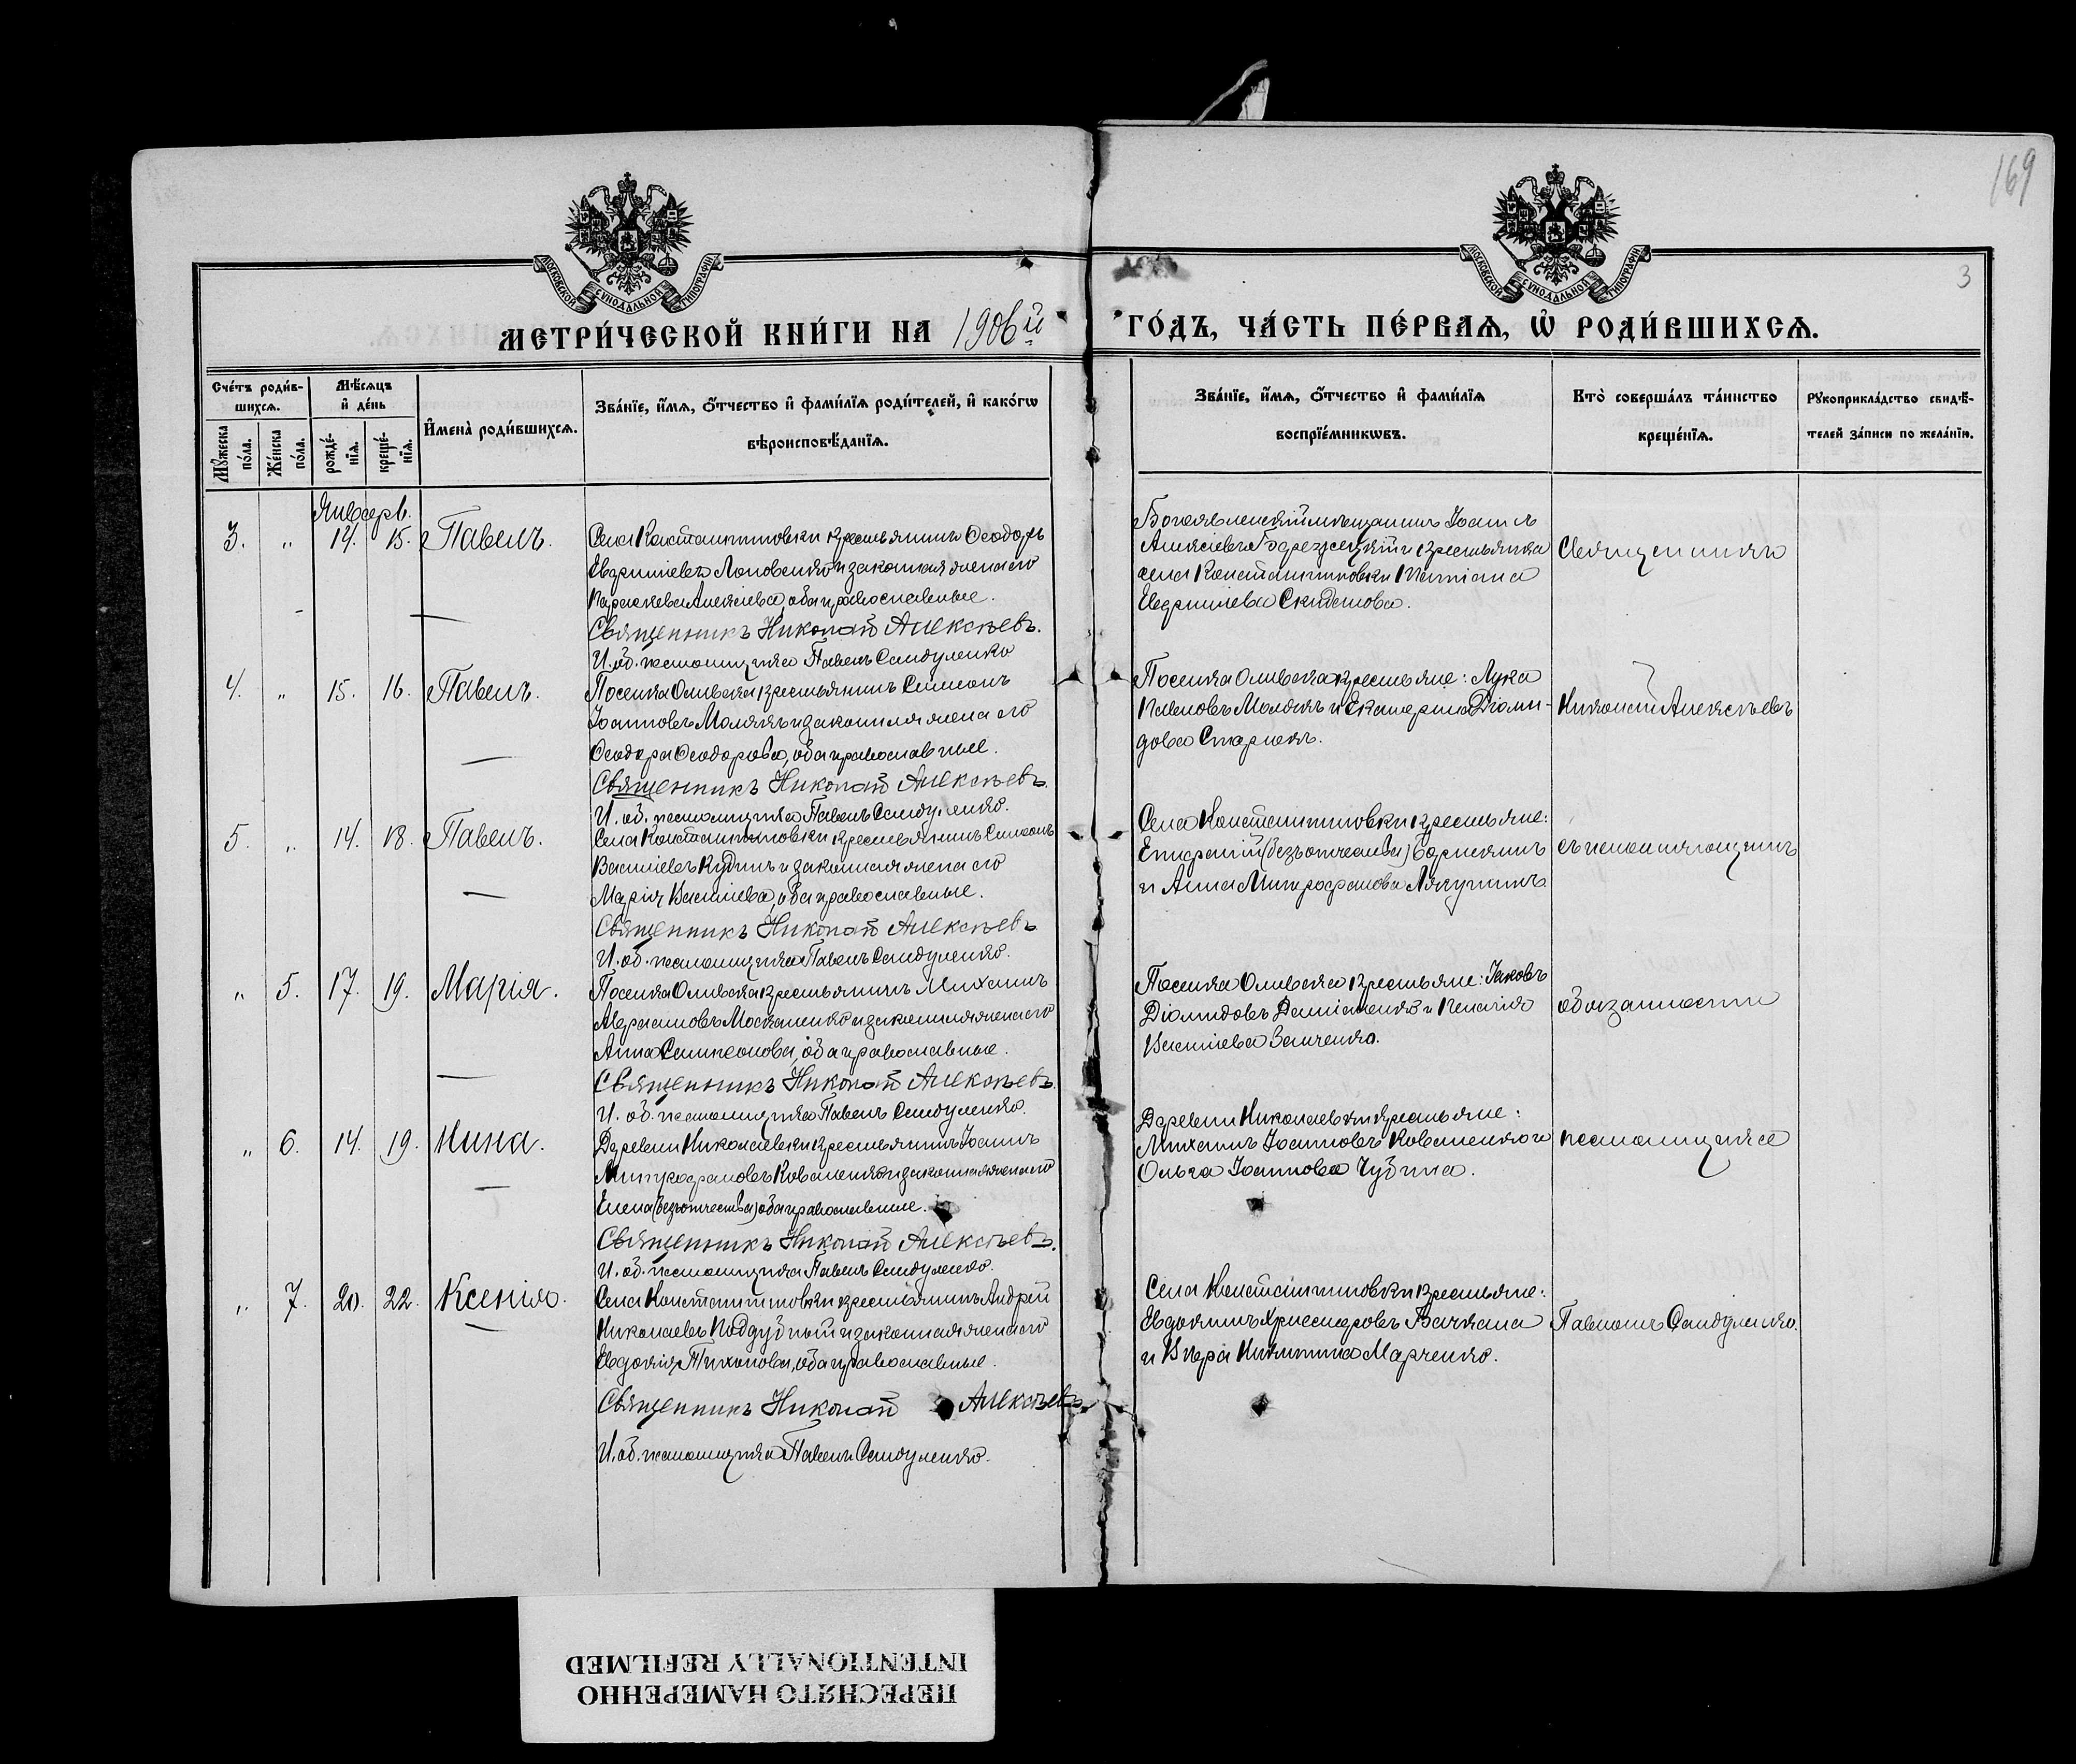 169
3
МОСКОВСКОЙ СѴНОДАЛЬНОЙ ТИПОГРАФІИ
МОСКОВСКОЙ СѴНОДАЛЬНОЙ ТИПОГРАФІИ
МЕТРИ́ЧЕСКОЙ КНИ́ГИ НА 1906й
ГО́ДЪ, ЧА́СТЬ ПЕ́РВАѦ, Ѡ҆ РОДИ́ВШИХСѦ.
Сче́тъ роди́в-
шихсѧ.
Мѣ́сѧцъ
и҆ де́нь
Мꙋ́жеска
по́ла.
Же́нска
по́ла.
рожде́-
нїѧ.
креще́-
нїѧ.
И҆мена̀ роди́вшихсѧ.
Зва́нїе, и҆́мѧ, ѻ҆́тчество и҆ фами́лїѧ роди́телей, и҆ како́гѡ
вѣроисповѣ́данїѧ.
Зва́нїе, и҆́мѧ, ѻ҆́тчество и҆ фами́лїѧ
воспрїе́мникѡвъ.
Кто̀ соверша́лъ та́инство
креще́нїѧ.
Рꙋкоприкла́дство свидѣ́-
телей за́писи по жела́нїю.
Январь.
3. „ 14. 15. Павелъ.
Села Константиновки крестьянинъ Ѳеодоръ
Евфиміевъ Лоповенко и законная жена его
Параскева Алексіева, оба православные.
Священникъ Николай Алексѣевъ.
И. об. псаломщика Павелъ Сандуленко
Богоявленскій мѣщанинъ Іоаннъ
Алексіевъ Бережецкій и крестьянка
села Константиновки
Евфиміева
Священникъ
4. „ 15. 16. Павелъ.
Поселка Ольвска крестьянинъ Симеонъ
Іоанновъ Молякъ и законная жена его
Ѳеодора Ѳеодорова, оба православные.
Священникъ Николай Алексѣевъ.
И. об. псаломщика Павелъ Сандуленко.
Поселка Ольвска крестьяне: Лука
Павловъ Молякъ и Екатерина Діоми-
дова
Николай Алексѣевъ
5. „ 14. 18. Павелъ.
Села Константиновки крестьянинъ Симеонъ
Василіевъ Кудинъ и законная жена его
Марія Василіева, оба православные.
Священникъ Николай Алексѣевъ
И. об. псаломщика Павелъ Сандуленко.
Села Константиновки крестьяне:
(безъ отчества)
и Анна Митрофанова
съ исполняющимъ
„ 5. 17. 19. Марія.
Поселка Ольвска крестьянинъ Михаилъ
Авраамовъ Москаленко и законная жена его
Анна Симеонова, оба православные.
Священникъ Николай Алексѣевъ.
И. об. псаломщика Павелъ Сандуленко.
Поселка Ольвска крестьяне: Іаковъ
Діомидовъ Даміаненко и Пелагія
Василіева Заиченко.
обязанности
„ 6. 14. 19. Нина.
Деревни Николаевки крестьянинъ Іоаннъ
Митрофановъ Коваленко и законная жена его
Елена (безъ отчества) оба православные.
Священникъ Николай Алексѣевъ.
И. об. псаломщика Павелъ Сандуленко.
Деревни Николаевки крестьяне:
Михаилъ Іоанновъ Коваленко и
Ольга Іоаннова Чубина.
псаломщика
„ 7. 20. 22. Ксенія.
Села Константиновки крестьянинъ Андрей
Николаевъ Поддубный и законная жена его
Евдокія Тихонова, оба православные.
Священникъ Николай Алексѣевъ
И. об. псаломщика Павелъ Сандуленко.
Села Константиновки крестьяне:
Евдокимъ Хрисанфовъ Бачкала
и Вѣра Никитина Марченко.
Павломъ Сандуленко.
ПЕРЕСНЯТО НАМЕРЕННО
INTENTIONALLY REFILMED